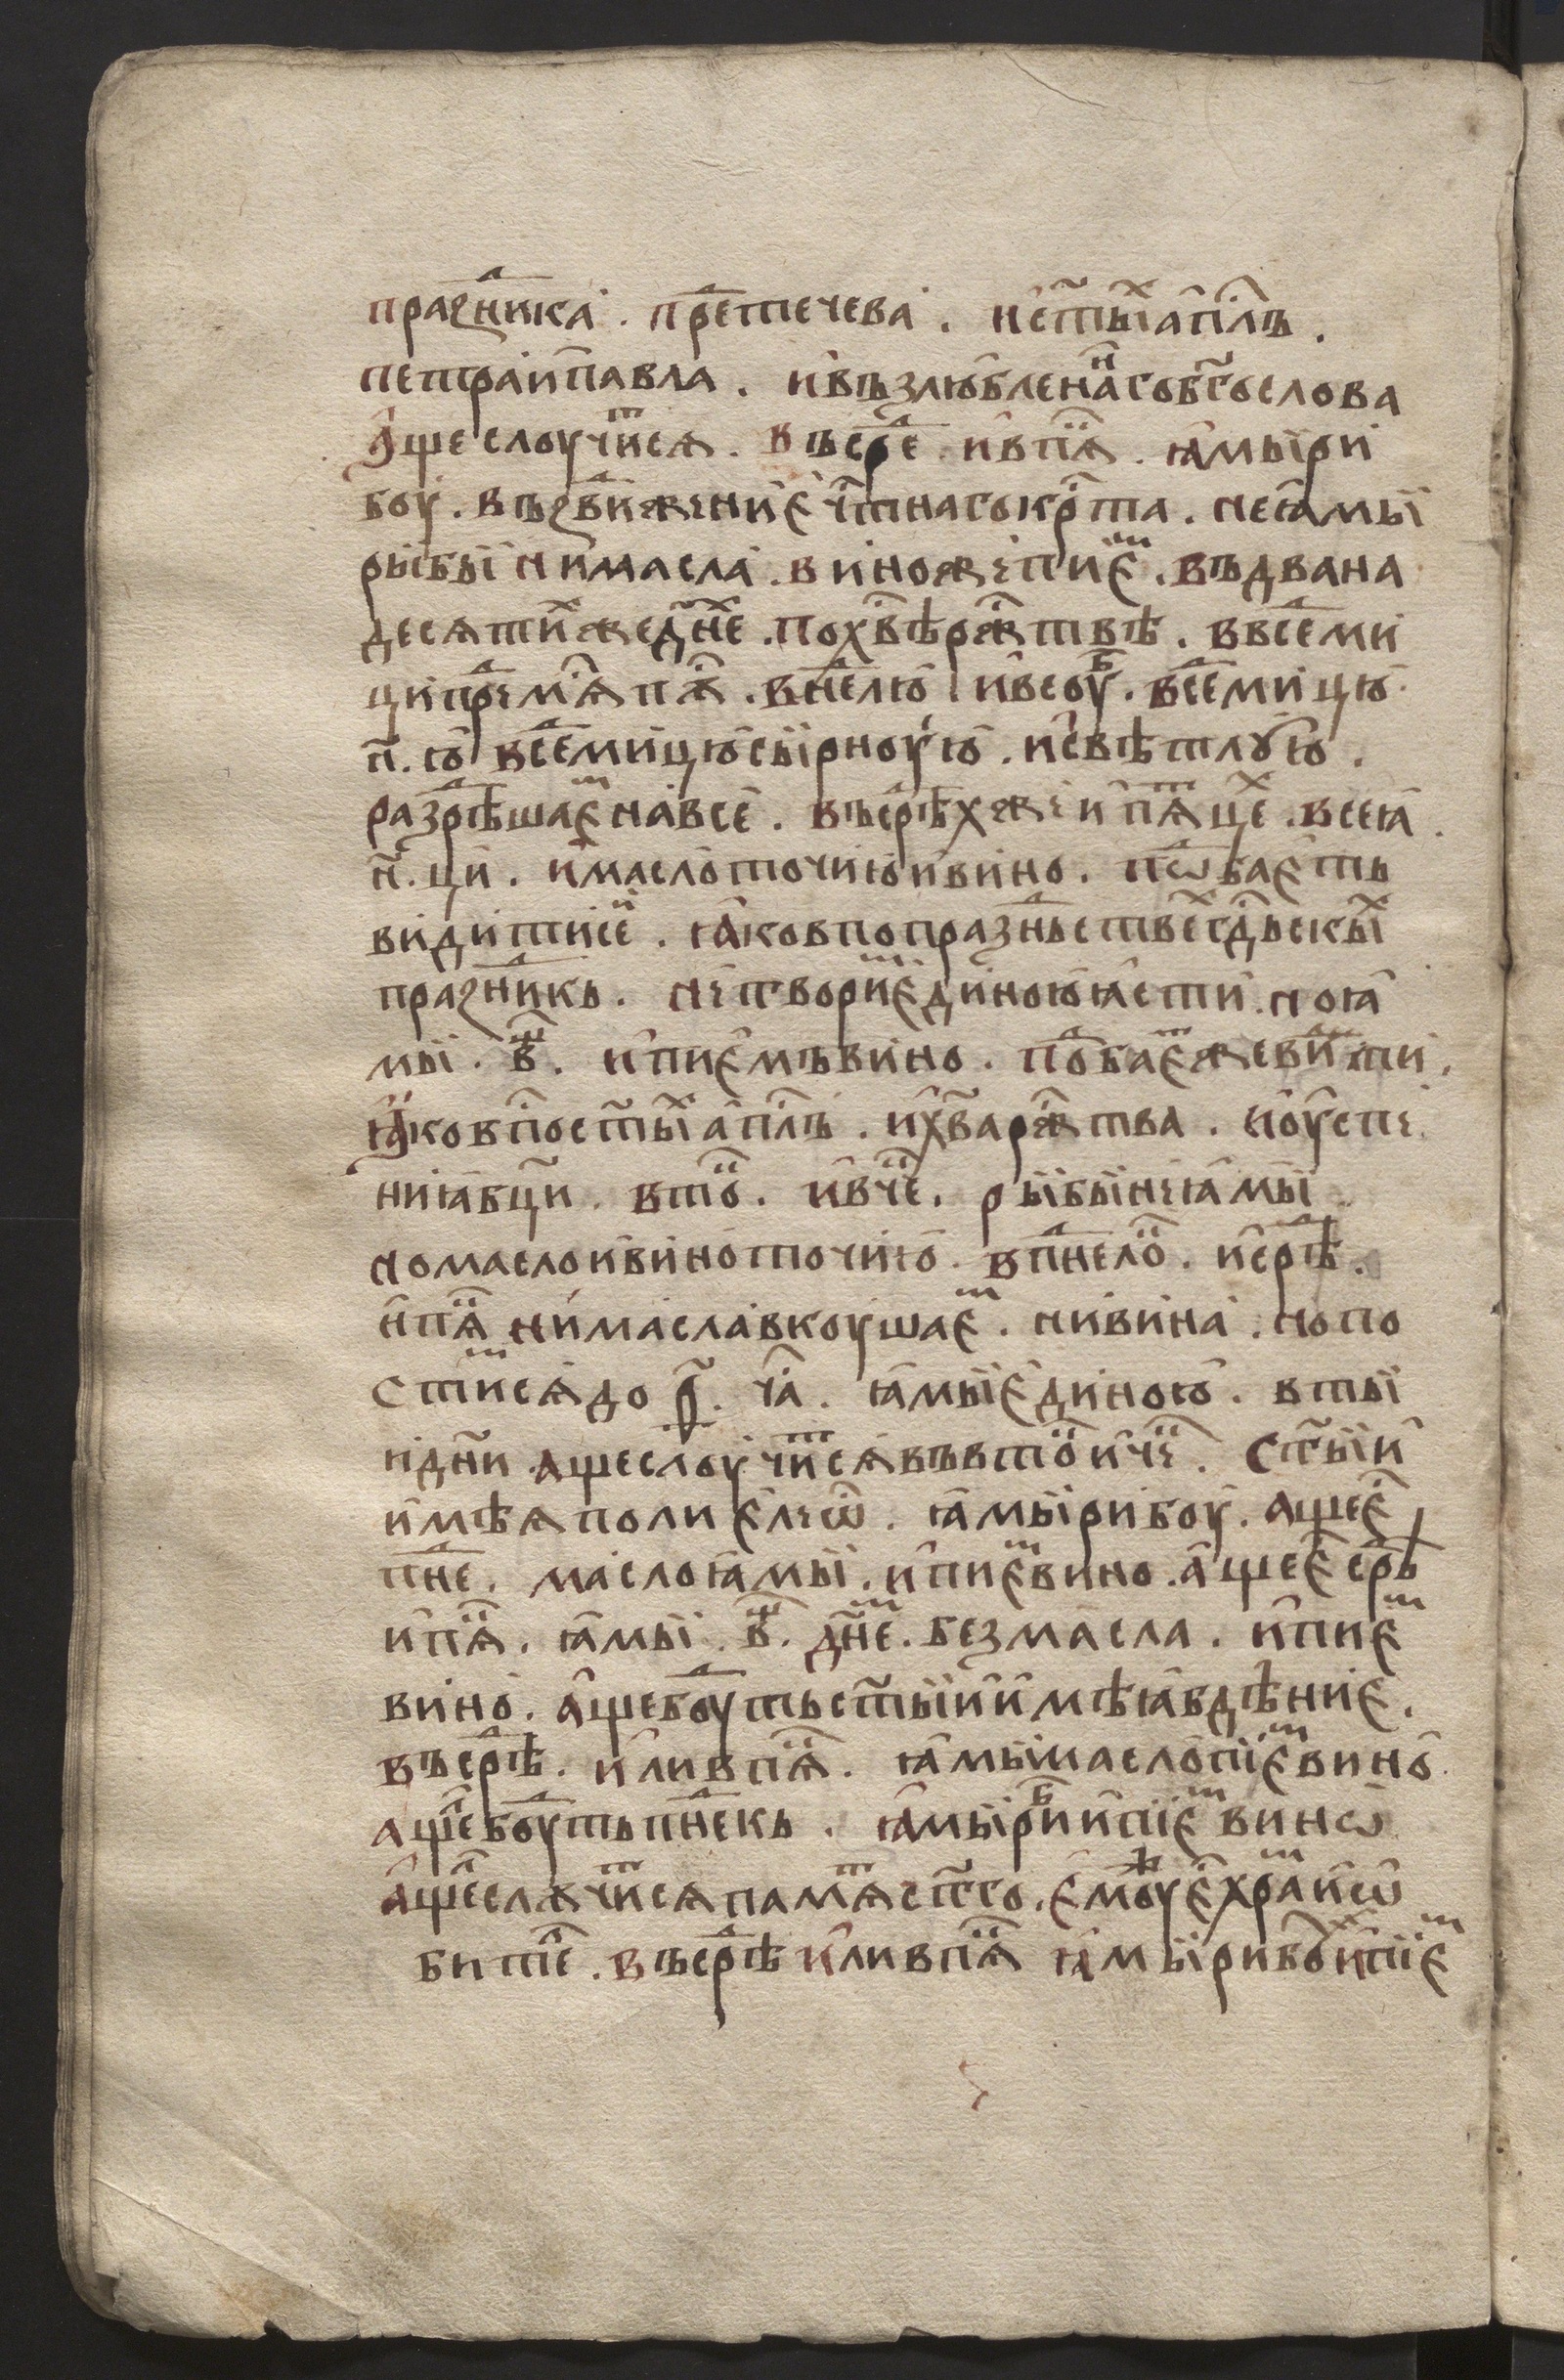 праꙁⷣника . прⷣетечева . и҆ ст҃ыⷯ а҆пⷭ҇лъ .
петра и҆ павла . и҆ възлюбленаⷩ҇го бг҃ослова
а҆ще слоучиⷮсѧ . въ среⷣ и҆ в пѧⷦ҇ . ꙗ҆мы ри
боу . въꙁдвиженїе чⷭ҇тнаго крⷭ҇та . не ꙗ҆мы
рыбы ни масла . вино же пиеⷨ . въ двана
десѧтиⷯ же дн҃еⷯ . по хв҃ѣ рожⷭ҇твѣ . в сеⷣми
ци преⷣ мѧⷭ҇пꙋⷭ҇ . в неⷣлю и҆ в соуⷠ . в сеⷣмицю
н҃ . ю҆ в сеⷣмицю сырноую . и҆ свѣтлꙋю .
разрⷣѣшаеⷨ на все . въ среⷣѣх же и пѧⷮцеⷯ . всеꙗ
н҃ . ци . и҆ масло точию и҆ вино . поⷣбаеть
видити сеⷤ . ꙗ҆ко в попразⷣньствеⷯ гдⷭ҇ьскыⷯ
праꙁⷣникь . не твориⷨ единою ꙗ҆сти . но ꙗ
мы . в҃ⷳ . и҆ пиемъ вино . поⷣбаеⷮ же виⷣти .
ꙗ҆ко в поⷭ҇ ст҃ыⷯ а҆пⷭ҇лъ . и҆ хв҃а рожⷭ҇тва . и҆ оуспе
ниꙗ бц҃и . в втоⷬ҇ . и҆ в чеⷮ . рыбы не ꙗ҆мы .
но масло и҆ вино точию . в пнⷣелоⷦ҇ . и҆ среⷣѣ .
и҆ пѧⷦ҇ ни масла вкоушаеⷨ . ни вина . но по
стиⷨсѧ до ѳ҃ . чаⷭ҇ . ꙗ҆мы единою . в ты
и дн҃и аще слоучиⷮсѧ въ втоⷬ҇ и҆ чеⷮ . ст҃ыи
имѣѧ полиелеѡⷭ҇ . ꙗ҆мы рибоу . аще еⷭ҇
пнⷣе . масло ꙗ҆мы . и҆ пиеⷨ вино . а҆ще еⷭ҇ среⷣ
и҆ пѧⷦ҇ . ꙗ҆мы . в҃ⷳ . дн҃еⷨ . без масла . и҆ пиеⷨ
вино . а҆ще боуⷣть ст҃ыи и҆мѣꙗ бдѣние .
въ среⷣѣ . и҆ли в пѧⷦ҇ . ꙗ҆мы масло пїеⷨ вино .
аще боуⷣть пнⷣекь . ꙗ҆мы риⷠ и҆ пїеⷨ вино
а҆ще слꙋчиⷮсѧ памѧⷮ ст҃го . емоуⷤ еⷭ҇ храⷨ и҆ ѡ
битеⷧ . въ среⷣѣ и҆ли в пѧⷦ҇ ꙗ҆мы рибоⷯ и҆ пїеⷨ